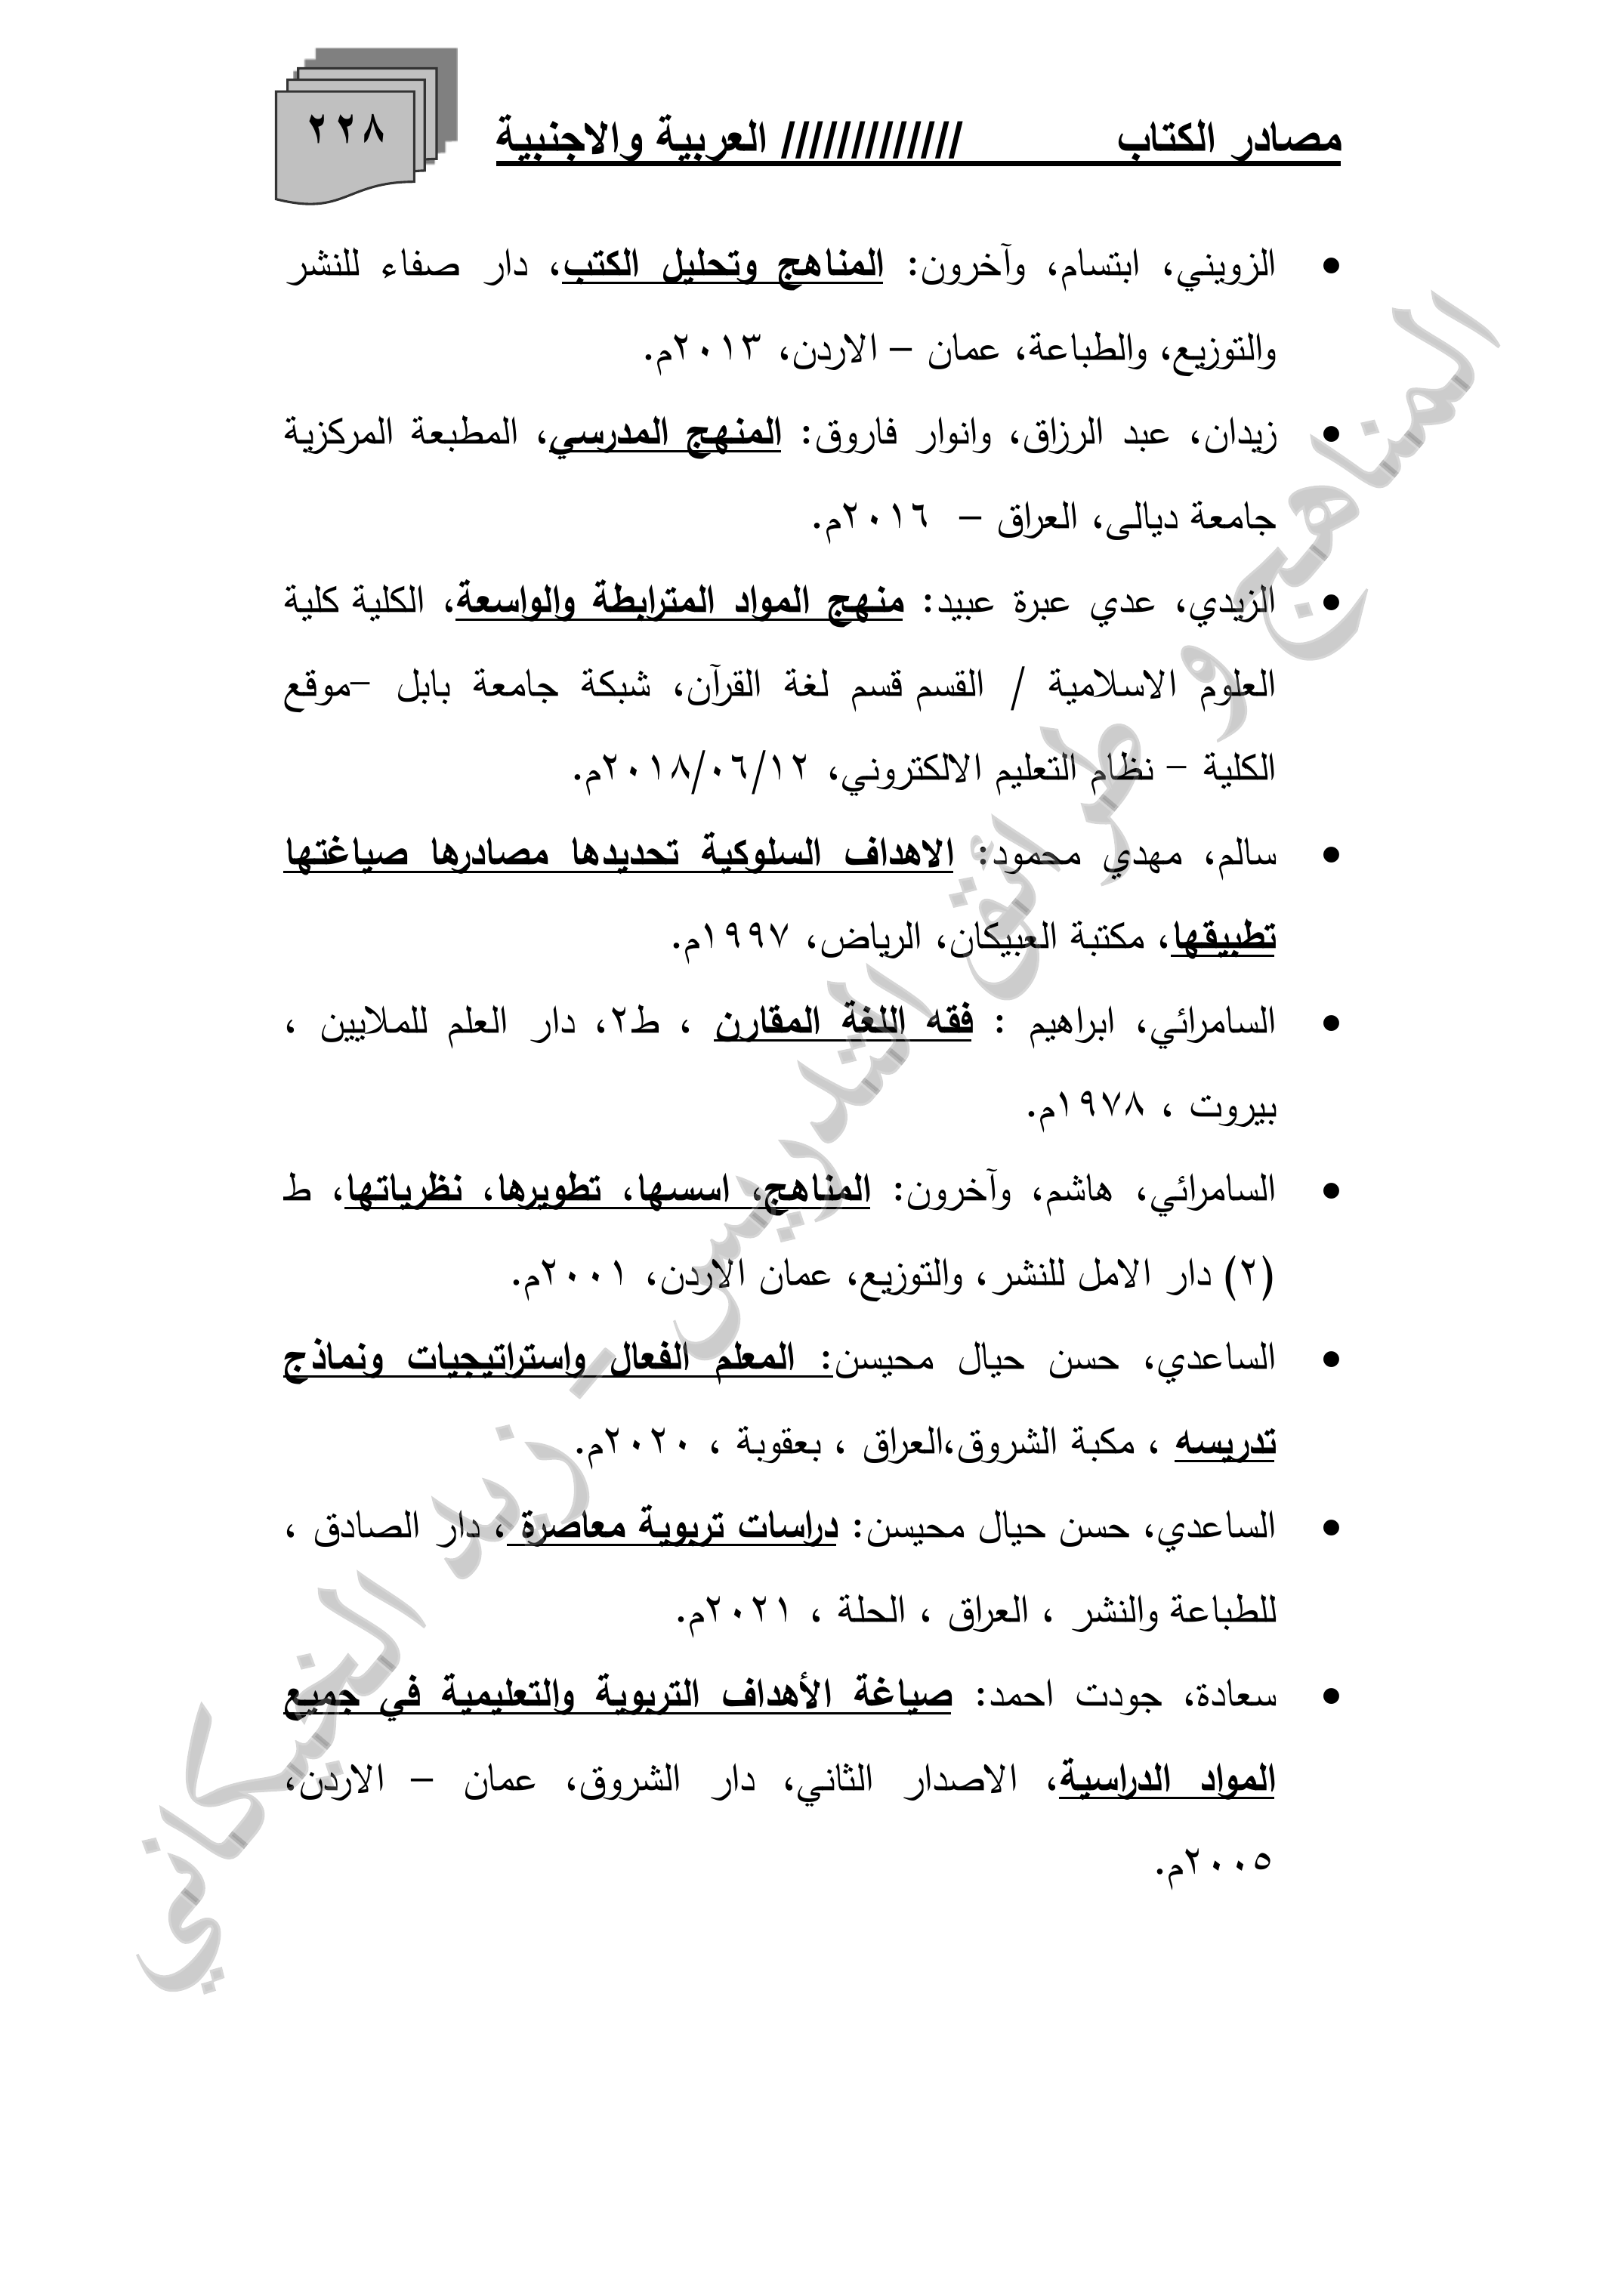 مصادر الكتاب ///////////// العربية والاجنبية
٢٢٨
• الزويني، ابتسام، وآخرون: المناهج وتحليل الكتب، دار صفاء للنشر
والتوزيع، والطباعة، عمان – الاردن، ٢٠١٣م.
• زيدان، عبد الرزاق، وانوار فاروق: المنهج المدرسي، المطبعة المركزية
جامعة ديالى، العراق – ٢٠١٦م.
• الزيدي، عدي عبرة عبيد: منهج المواد المترابطة والواسعة، الكلية كلية
العلوم الاسلامية / القسم قسم لغة القرآن، شبكة جامعة بابل –موقع
الكلية – نظام التعليم الالكتروني، ٢٠١٨/٠٦/١٢م.
• سالم، مهدي محمود: الاهداف السلوكية تحديدها مصادرها صياغتها
تطبيقها، مكتبة العبيكان، الرياض، ١٩٩٧م.
• السامرائي، ابراهيم : فقه اللغة المقارن ، ط٢، دار العلم للملايين ،
بيروت ، ١٩٧٨م.
• السامرائي، هاشم، وآخرون: المناهج، اسسها، تطويرها، نظرياتها، ط
(٢) دار الامل للنشر، والتوزيع، عمان الاردن، ٢٠٠١م.
• الساعدي، حسن حيال محيسن: المعلم الفعال واستراتيجيات ونماذج
تدريسه ، مكبة الشروق،العراق ، بعقوبة ، ٢٠٢٠م.
• الساعدي، حسن حيال محيسن: دراسات تربوية معاصرة ، دار الصادق ،
للطباعة والنشر ، العراق ، الحلة ، ٢٠٢١م.
• سعادة، جودت احمد: صياغة الأهداف التربوية والتعليمية في جميع
المواد الدراسية، الاصدار الثاني، دار الشروق، عمان – الاردن،
٢٠٠٥م.
المناهج و طرائق التدريس - زيد الخيكاني